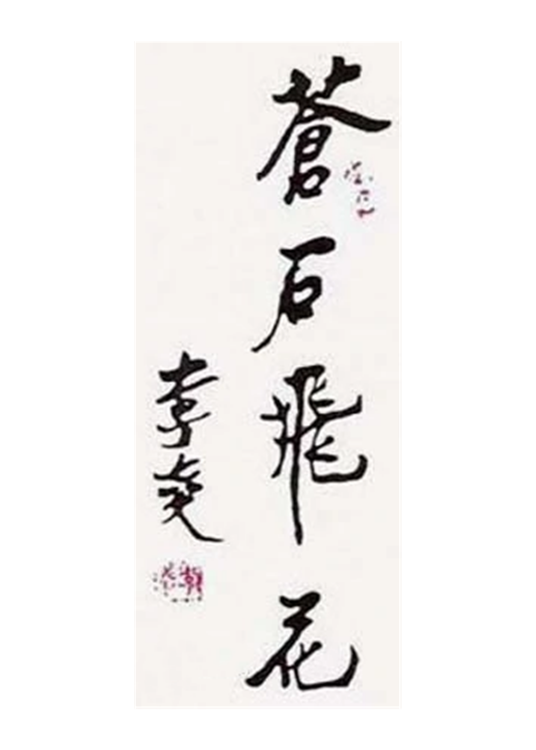 蒼石飛花
李尭